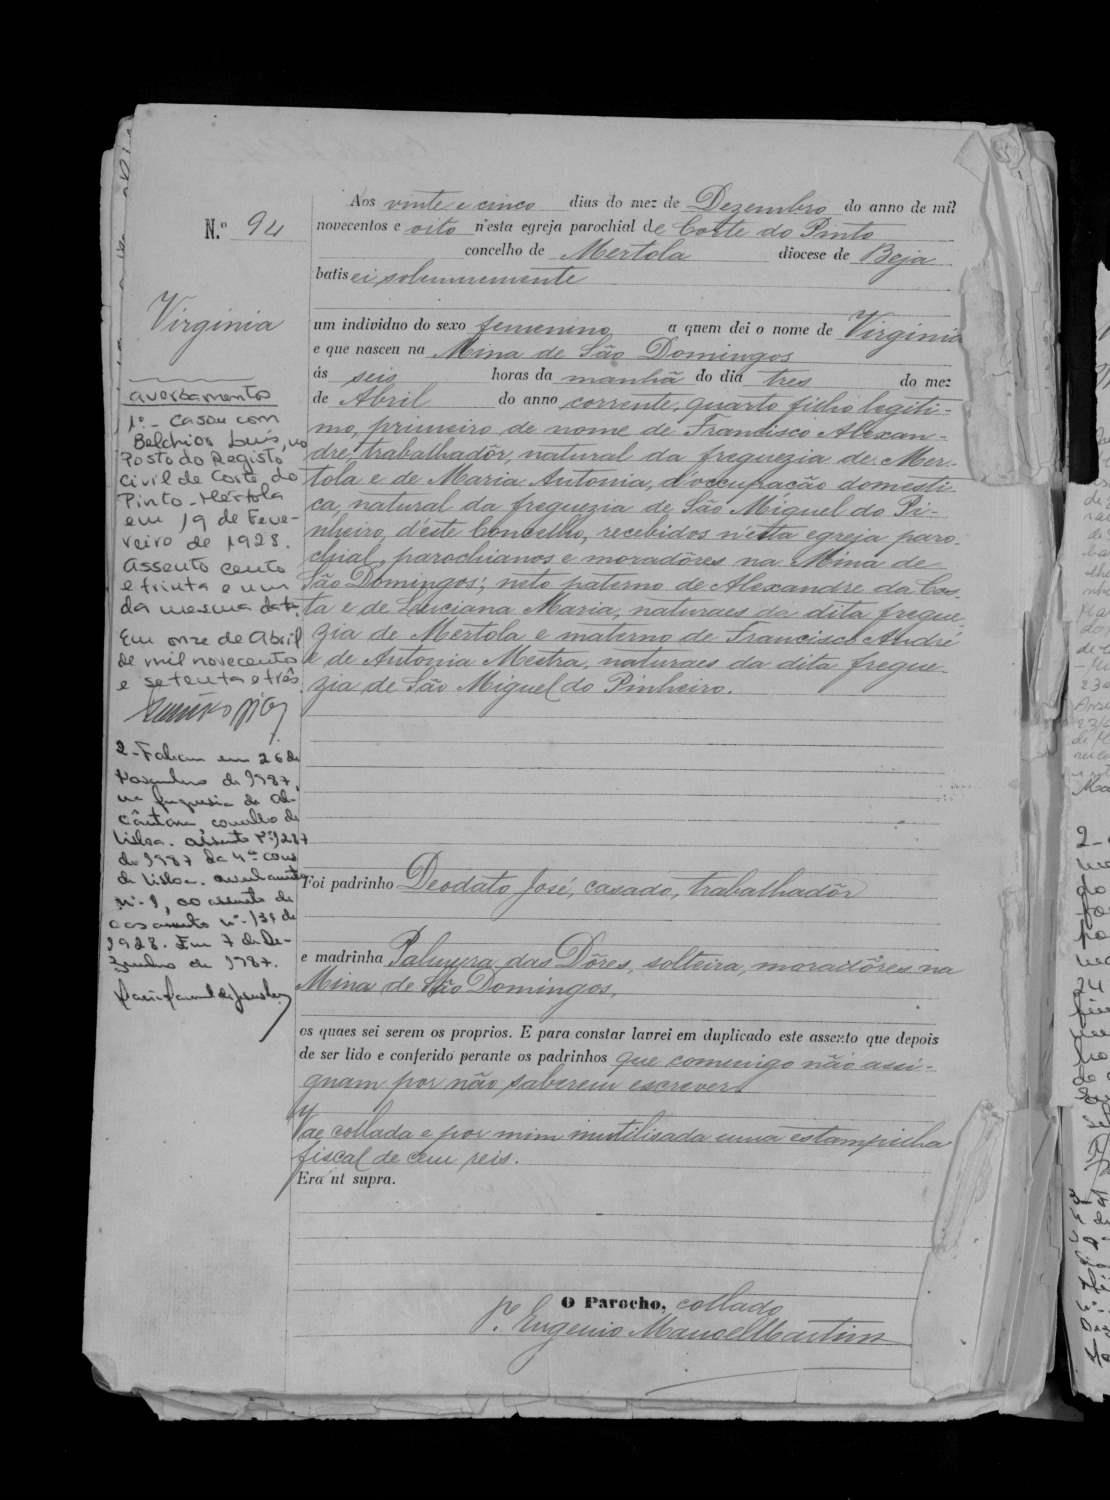 N.º 94
Virginia
Averbamentos
1º - Casou com
Belchior Luís, no
Posto do Registo
Civil de Corte do
Pinto - Mértola
em 19 de Feve-
reiro de 1928.
Assento cento
e trinta e um
da mesma data.
Em onze de Abril
de mil novecento
e setenta e três.
2 - Faleceu em 26 de
Novembro de 1987,
na freguesia de Al-
cântara concelho de
Lisboa. Assento nº 1287
de 1987 da 4ª cons
de Lisboa. averbamento
Nº 1, ao assento de
casamento nº 131 de
1928. Em 7 de De-
zembro de 1987.
Aos vinte e cinco dias do mez de Dezembro do anno de mil
novecentos e oito n'esta egreja parochial de Corte do Pinto
concelho de Mertola diocese de Beja
batisei solemnemente
um individuo do sexo femenino a quem dei o nome de Virginia
e que nasceu na Mina de São Domingos
ás seis horas da manhã do dia tres do mez
de Abril do anno corrente, quarto filho legiti-
mo, primeiro de nome de Francisco Alexan-
dre, trabalhadôr, natural da freguezia de Mer-
tola e de Maria Antonia, d'occupacão domesti-
ca, natural da freguezia de São Miguel do Pi-
nheiro, d'éste Concelho, recebidos n'esta egreja paro-
chial, parochianos e moradôres na Mina de
São Domingos; neto paterno de Alexandre da Cos-
ta e de Luciana Maria, naturaes da dita fregue-
zia de Mertola e materno de Francisco André
e de Antonia Mestra, naturaes da dita fregue-
zia de São Miguel do Pinheiro.
Foi padrinho Deodato José, casado, trabalhadôr
e madrinha Palmyra das Dôres, solteira, moradôres na
Mina de São Domingos,
os quaes sei serem os proprios. E para constar lavrei em duplicado este assento que depois
de ser lido e conferido perante os padrinhos que commigo não assi-
gnam por não saberem escrever.
Vae collada e por mim inutilisada uma estampilha
fiscal de cem reis.
Era ut supra.
O Parocho, collado
P.e Eugenio Manoel Martins